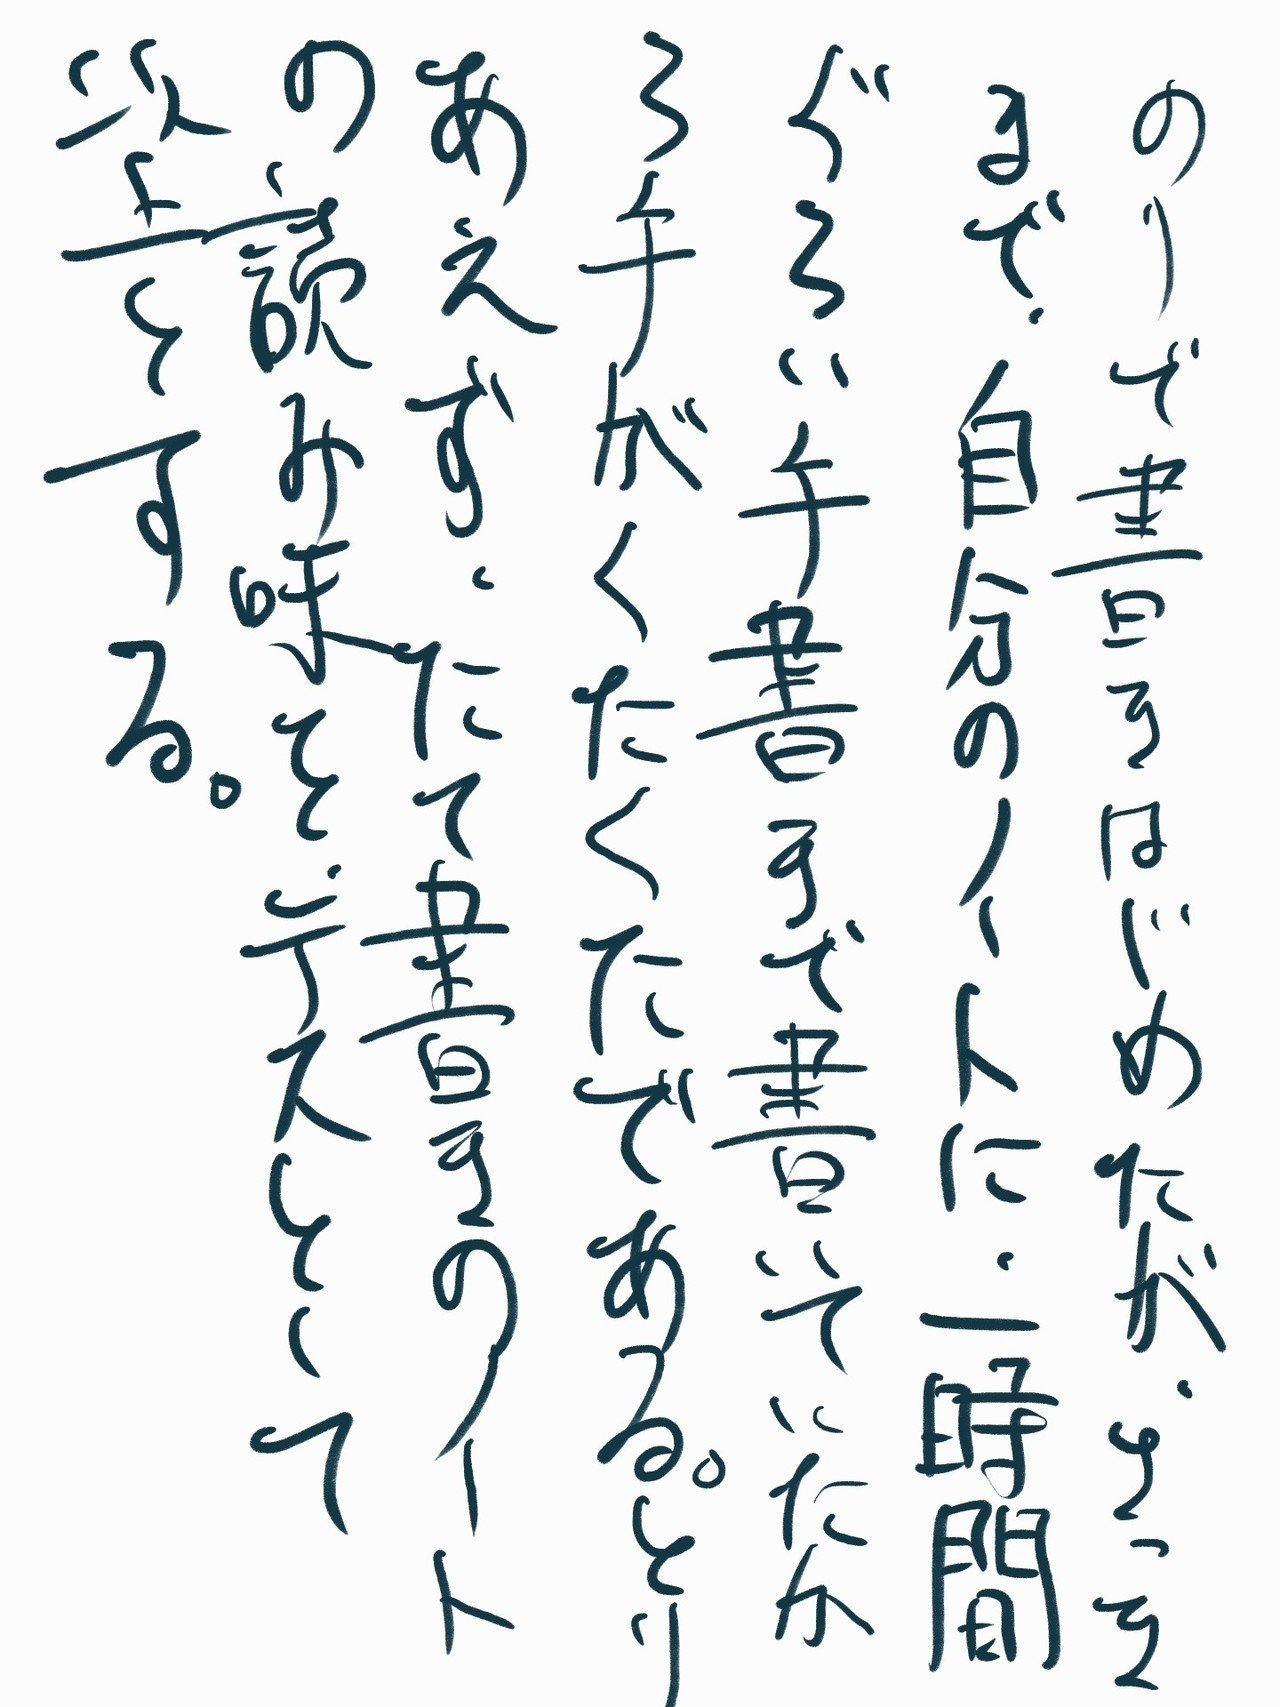 のりで書きはじめたが、さっき
まで、自分のノートに、一時間
ぐらい手書きで書いていたか
ら手がくたくたである。とり
あえず、たて書きのノート
の読み味を、テストして
投稿をする。